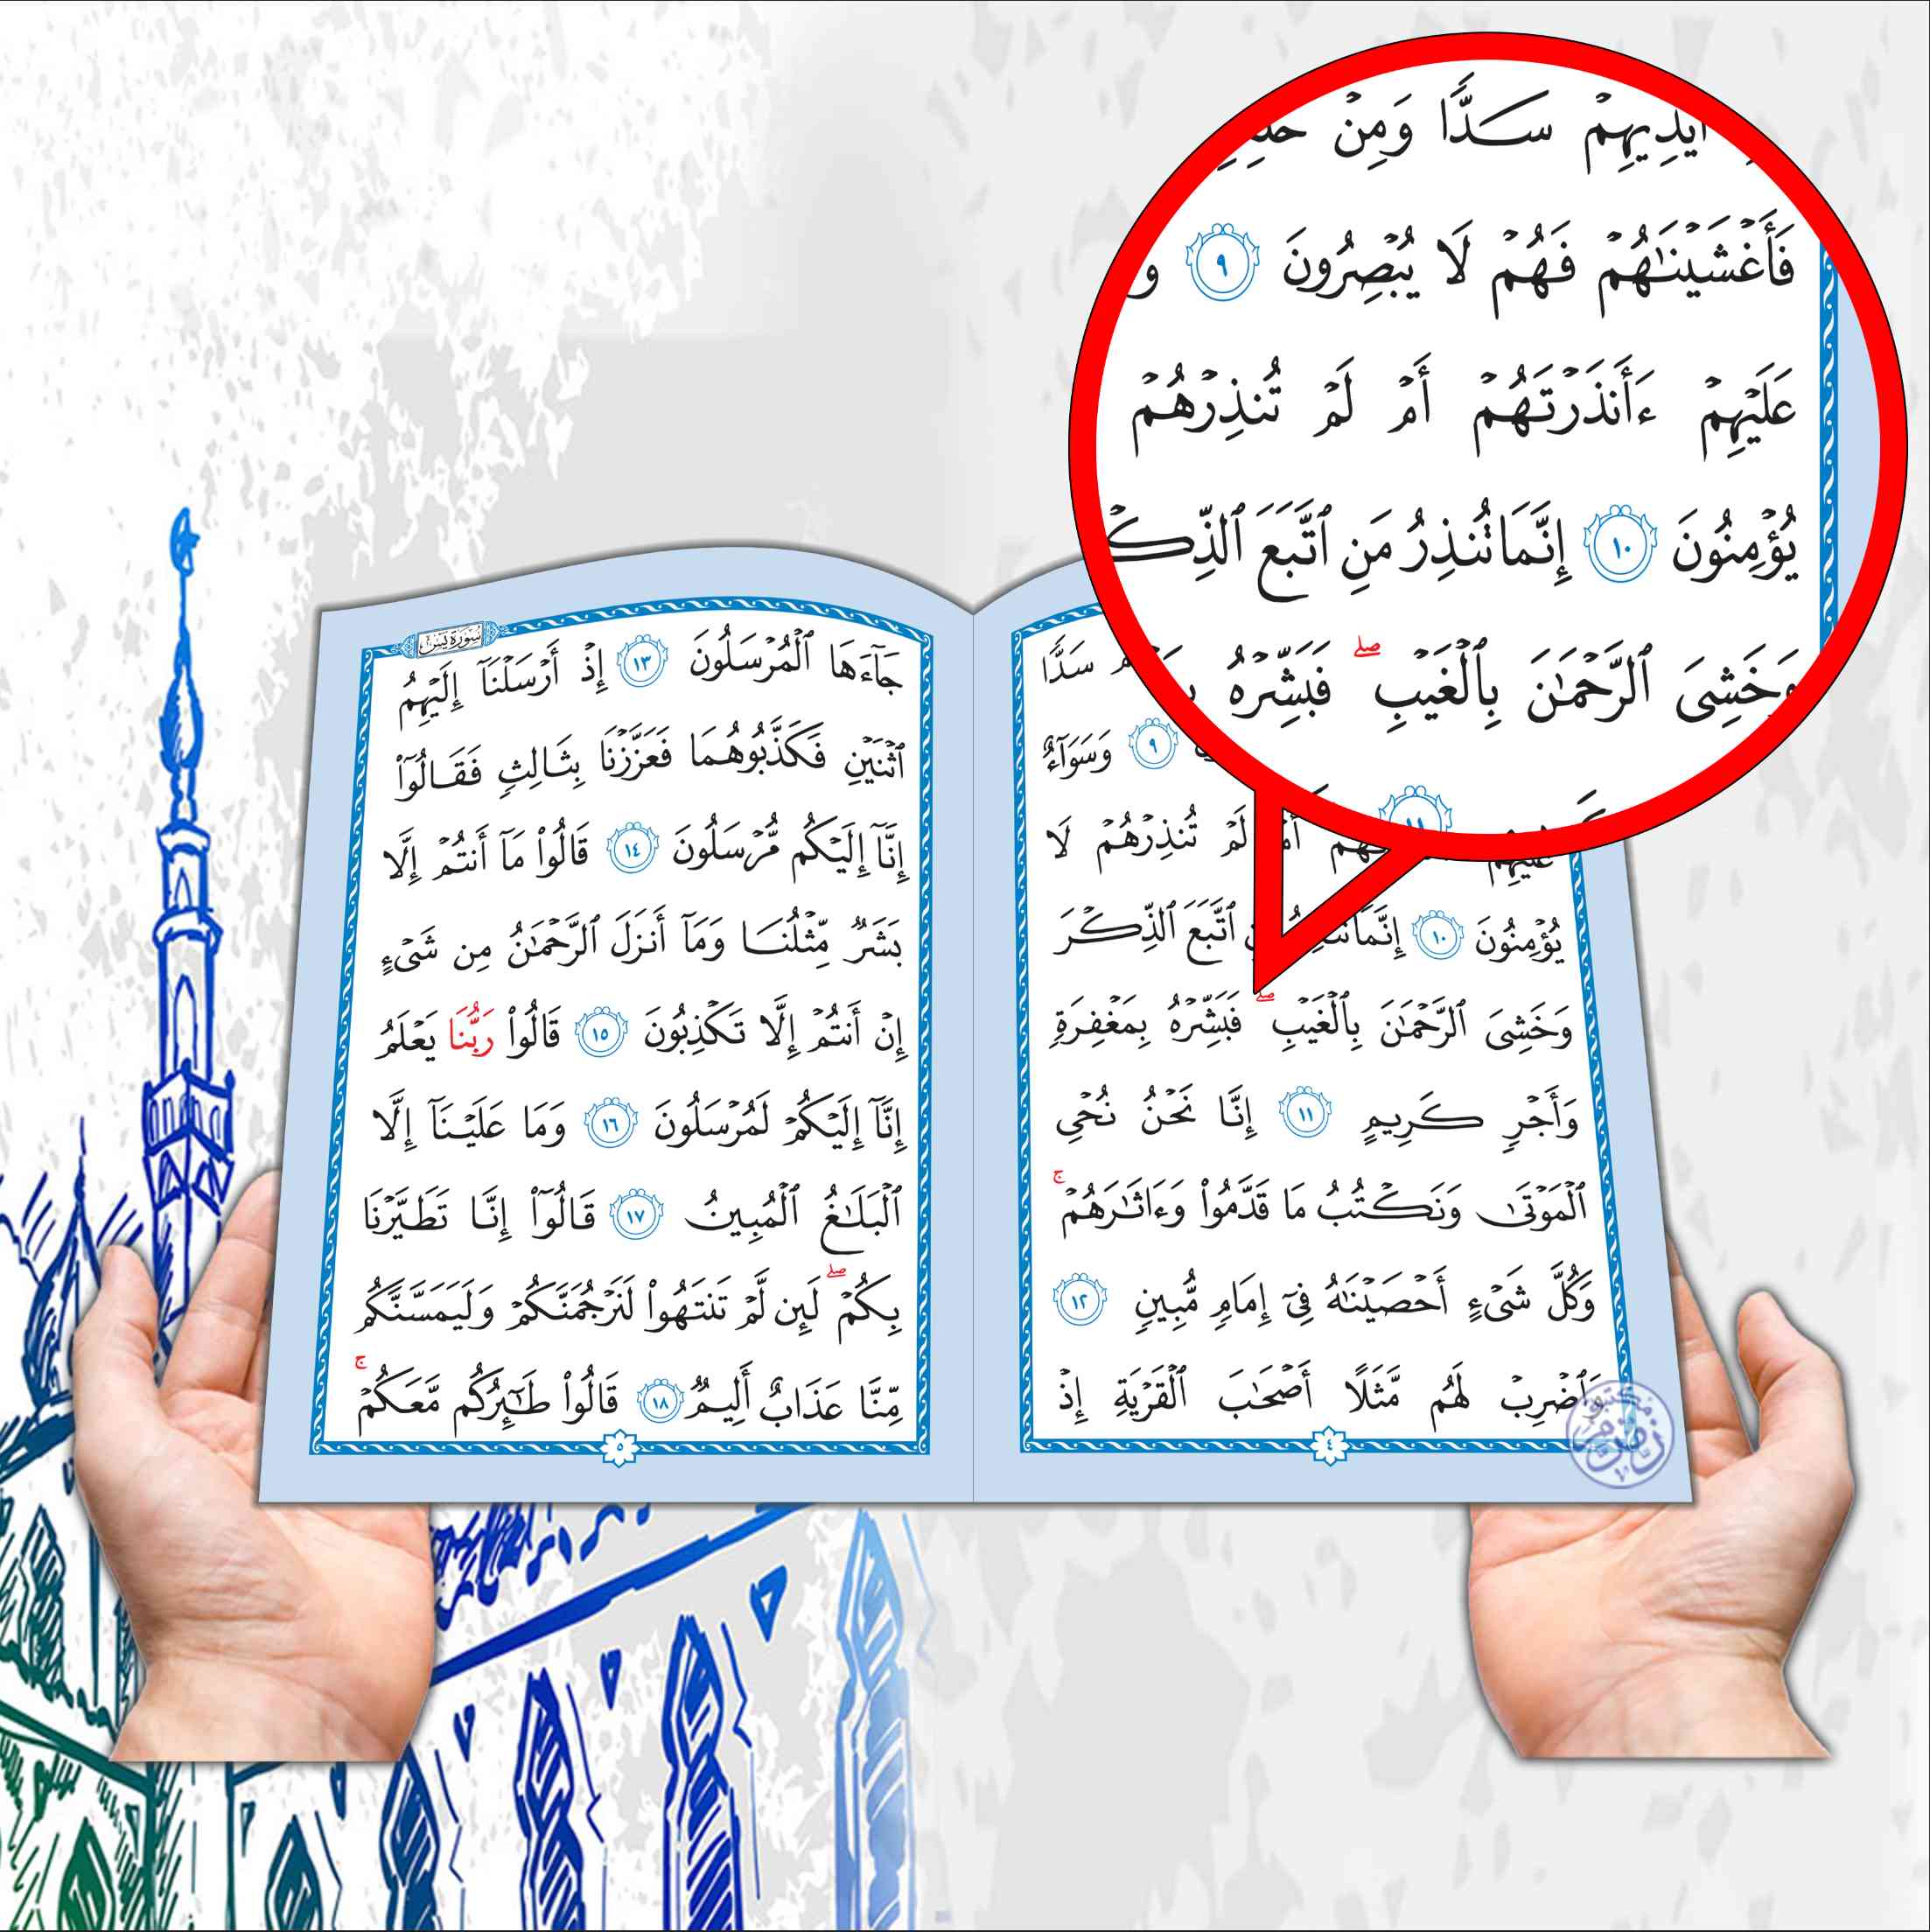 أَيْدِيهِمْ سَدًّا وَمِنْ
فَأَغْشَيْنَٰهُمْ فَهُمْ لَا يُبْصِرُونَ ٩ و
عَلَيْهِمْ ءَأَنذَرْتَهُمْ أَمْ لَمْ تُنذِرْهُمْ
يُؤْمِنُونَ ١٠ إِنَّمَا تُنذِرُ مَنِ ٱتَّبَعَ ٱلذِّكْ
وَخَشِىَ ٱلرَّحْمَٰنَ بِٱلْغَيْبِ ۖ فَبَشِّرْهُ
١١
سَدًّا
٩ وَسَوَآءٌ
عَلَيْهِمْ أَمْ لَمْ تُنذِرْهُمْ لَا
يُؤْمِنُونَ ١٠ إِنَّمَا ٱتَّبَعَ ٱلذِّكْرَ
وَخَشِىَ ٱلرَّحْمَٰنَ بِٱلْغَيْبِ ۖ فَبَشِّرْهُ بِمَغْفِرَةٍ
وَأَجْرٍ كَرِيمٍ ١١ إِنَّا نَحْنُ نُحْىِ
ٱلْمَوْتَىٰ وَنَكْتُبُ مَا قَدَّمُوا۟ وَءَاثَٰرَهُمْ ۚ
وَكُلَّ شَىْءٍ أَحْصَيْنَٰهُ فِىٓ إِمَامٍ مُّبِينٍ ١٢
وَٱضْرِبْ لَهُم مَّثَلًا أَصْحَٰبَ ٱلْقَرْيَةِ إِذْ
٤
سورة يس
جَآءَهَا ٱلْمُرْسَلُونَ ١٣ إِذْ أَرْسَلْنَآ إِلَيْهِمُ
ٱثْنَيْنِ فَكَذَّبُوهُمَا فَعَزَّزْنَا بِثَالِثٍ فَقَالُوٓا۟
إِنَّآ إِلَيْكُم مُّرْسَلُونَ ١٤ قَالُوا۟ مَآ أَنتُمْ إِلَّا
بَشَرٌ مِّثْلُنَا وَمَآ أَنزَلَ ٱلرَّحْمَٰنُ مِن شَىْءٍ
إِنْ أَنتُمْ إِلَّا تَكْذِبُونَ ١٥ قَالُوا۟ رَبُّنَا يَعْلَمُ
إِنَّآ إِلَيْكُمْ لَمُرْسَلُونَ ١٦ وَمَا عَلَيْنَآ إِلَّا
ٱلْبَلَٰغُ ٱلْمُبِينُ ١٧ قَالُوٓا۟ إِنَّا تَطَيَّرْنَا
بِكُمْ ۖ لَئِن لَّمْ تَنتَهُوا۟ لَنَرْجُمَنَّكُمْ وَلَيَمَسَّنَّكُم
مِّنَّا عَذَابٌ أَلِيمٌ ١٨ قَالُوا۟ طَٰٓئِرُكُم مَّعَكُمْ ۚ
٥